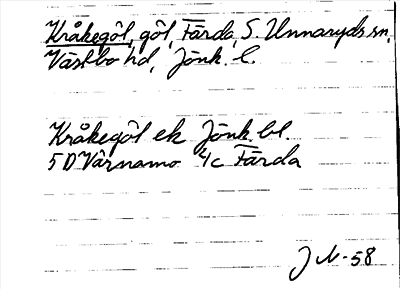 Kråkegöl, göl, Färda, S. Unnaryds sn,
Västbo hd, Jönk. l.
Kråkegöl ek Jönk. bl.
5 D Värnamo 4c Färda
J N-58